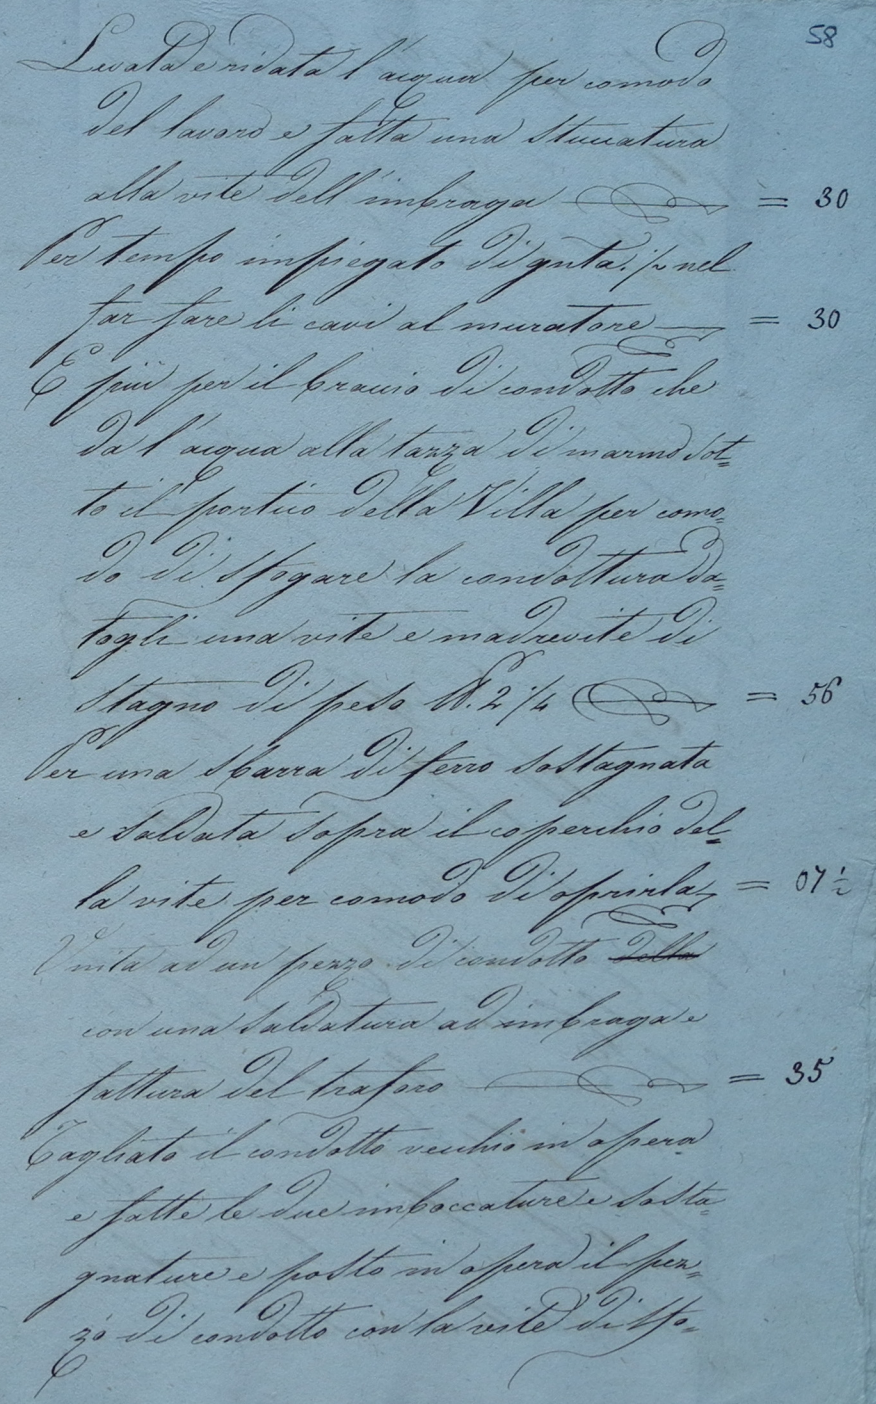 58
Levata e ridata l'acqua per comodo
del lavoro e fatta una stuccatura
alla vite dell'imbraga = 30
Per tempo impiegato di gnta. ½ nel
far fare li cavi al muratore = 30
E più per il braccio di condotto che
da l'acqua alla tazza di marmo sot=
to il portico della Villa per como=
do di sfogare la condottura da=
togli una vite e madrevite di
stagno di peso lb. 2 ¼ = 56
Per una sbarra di ferro sostagnata
e saldata sopra il coperchio del=
la vite per comodo di oprirla = 07 ½
Unita ad un pezzo di condotto della
con una saldatura ad imbraga e
fattura del traforo = 35
Tagliato il condotto vecchio in opera
e fatte le due imboccature e sosta=
gnature e posto in opera il pez=
zo di condotto con la vite di sfo=